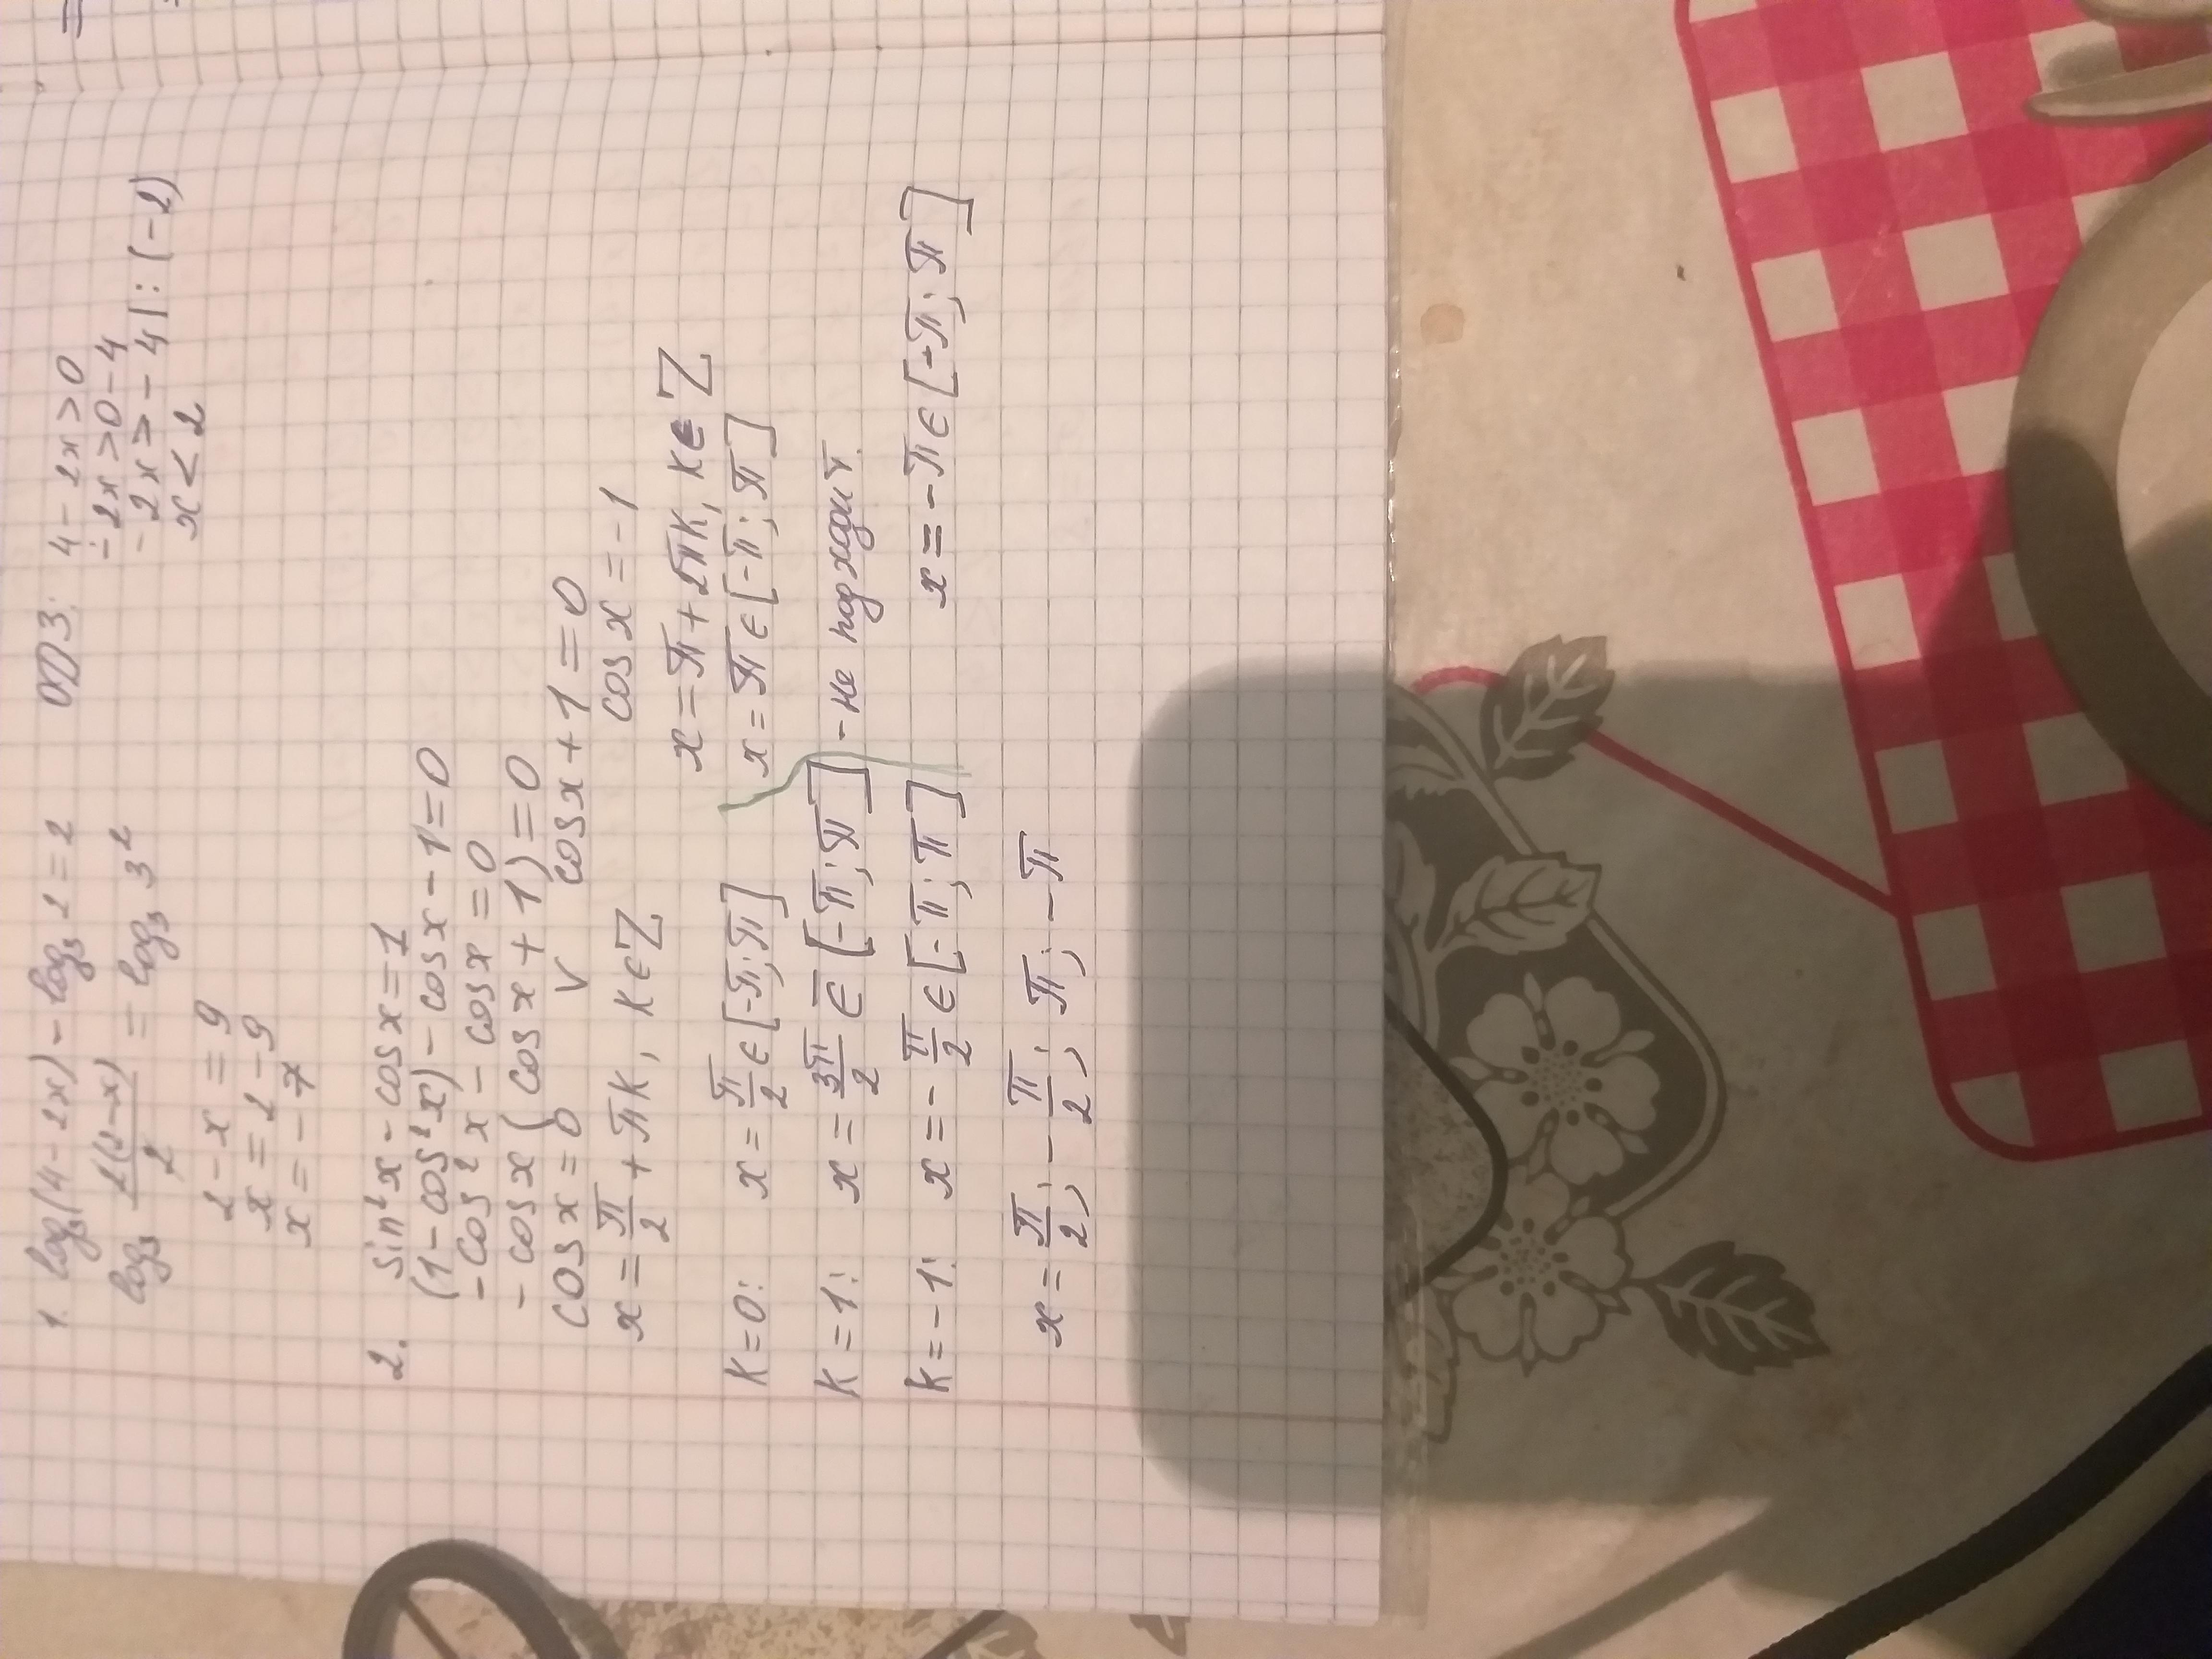 1. log₃(4-2x) - log₃2 = 2 ОДЗ: 4-2x>0
log₃ 2(2-x)/2 = log₃ 3² -2x>0-4
-2x>-4 |:(-2)
2-x=9 x<2
x=2-9
x=-7
2. sin²x - cos x = 1
(1-cos²x) - cos x - 1 = 0
-cos²x - cos x = 0
-cos x (cos x + 1) = 0
cos x = 0 v cos x + 1 = 0
x = π/2 + πk, k∈Z cos x = -1
x = π + 2πk, k∈Z
k=0: x = π/2 ∈ [-π; π] x = π ∈ [-π; π]
k=1: x = 3π/2 ∈̅ [-π; π] - не подходит.
k=-1: x = -π/2 ∈ [-π; π] x = -π ∈ [-π; π]
x = π/2; -π/2; π; -π